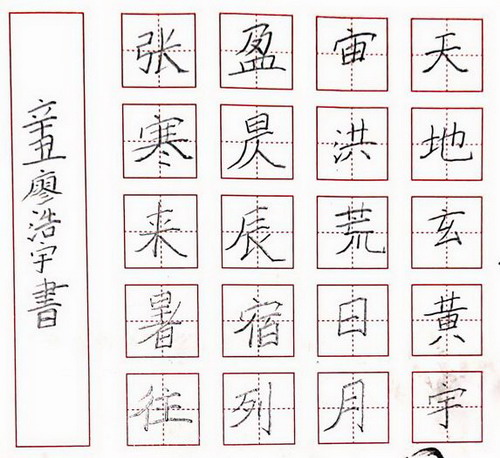 天地玄黃宇
宙洪荒日月
盈昃辰宿列
张寒来暑往
辛丑廖浩宇書